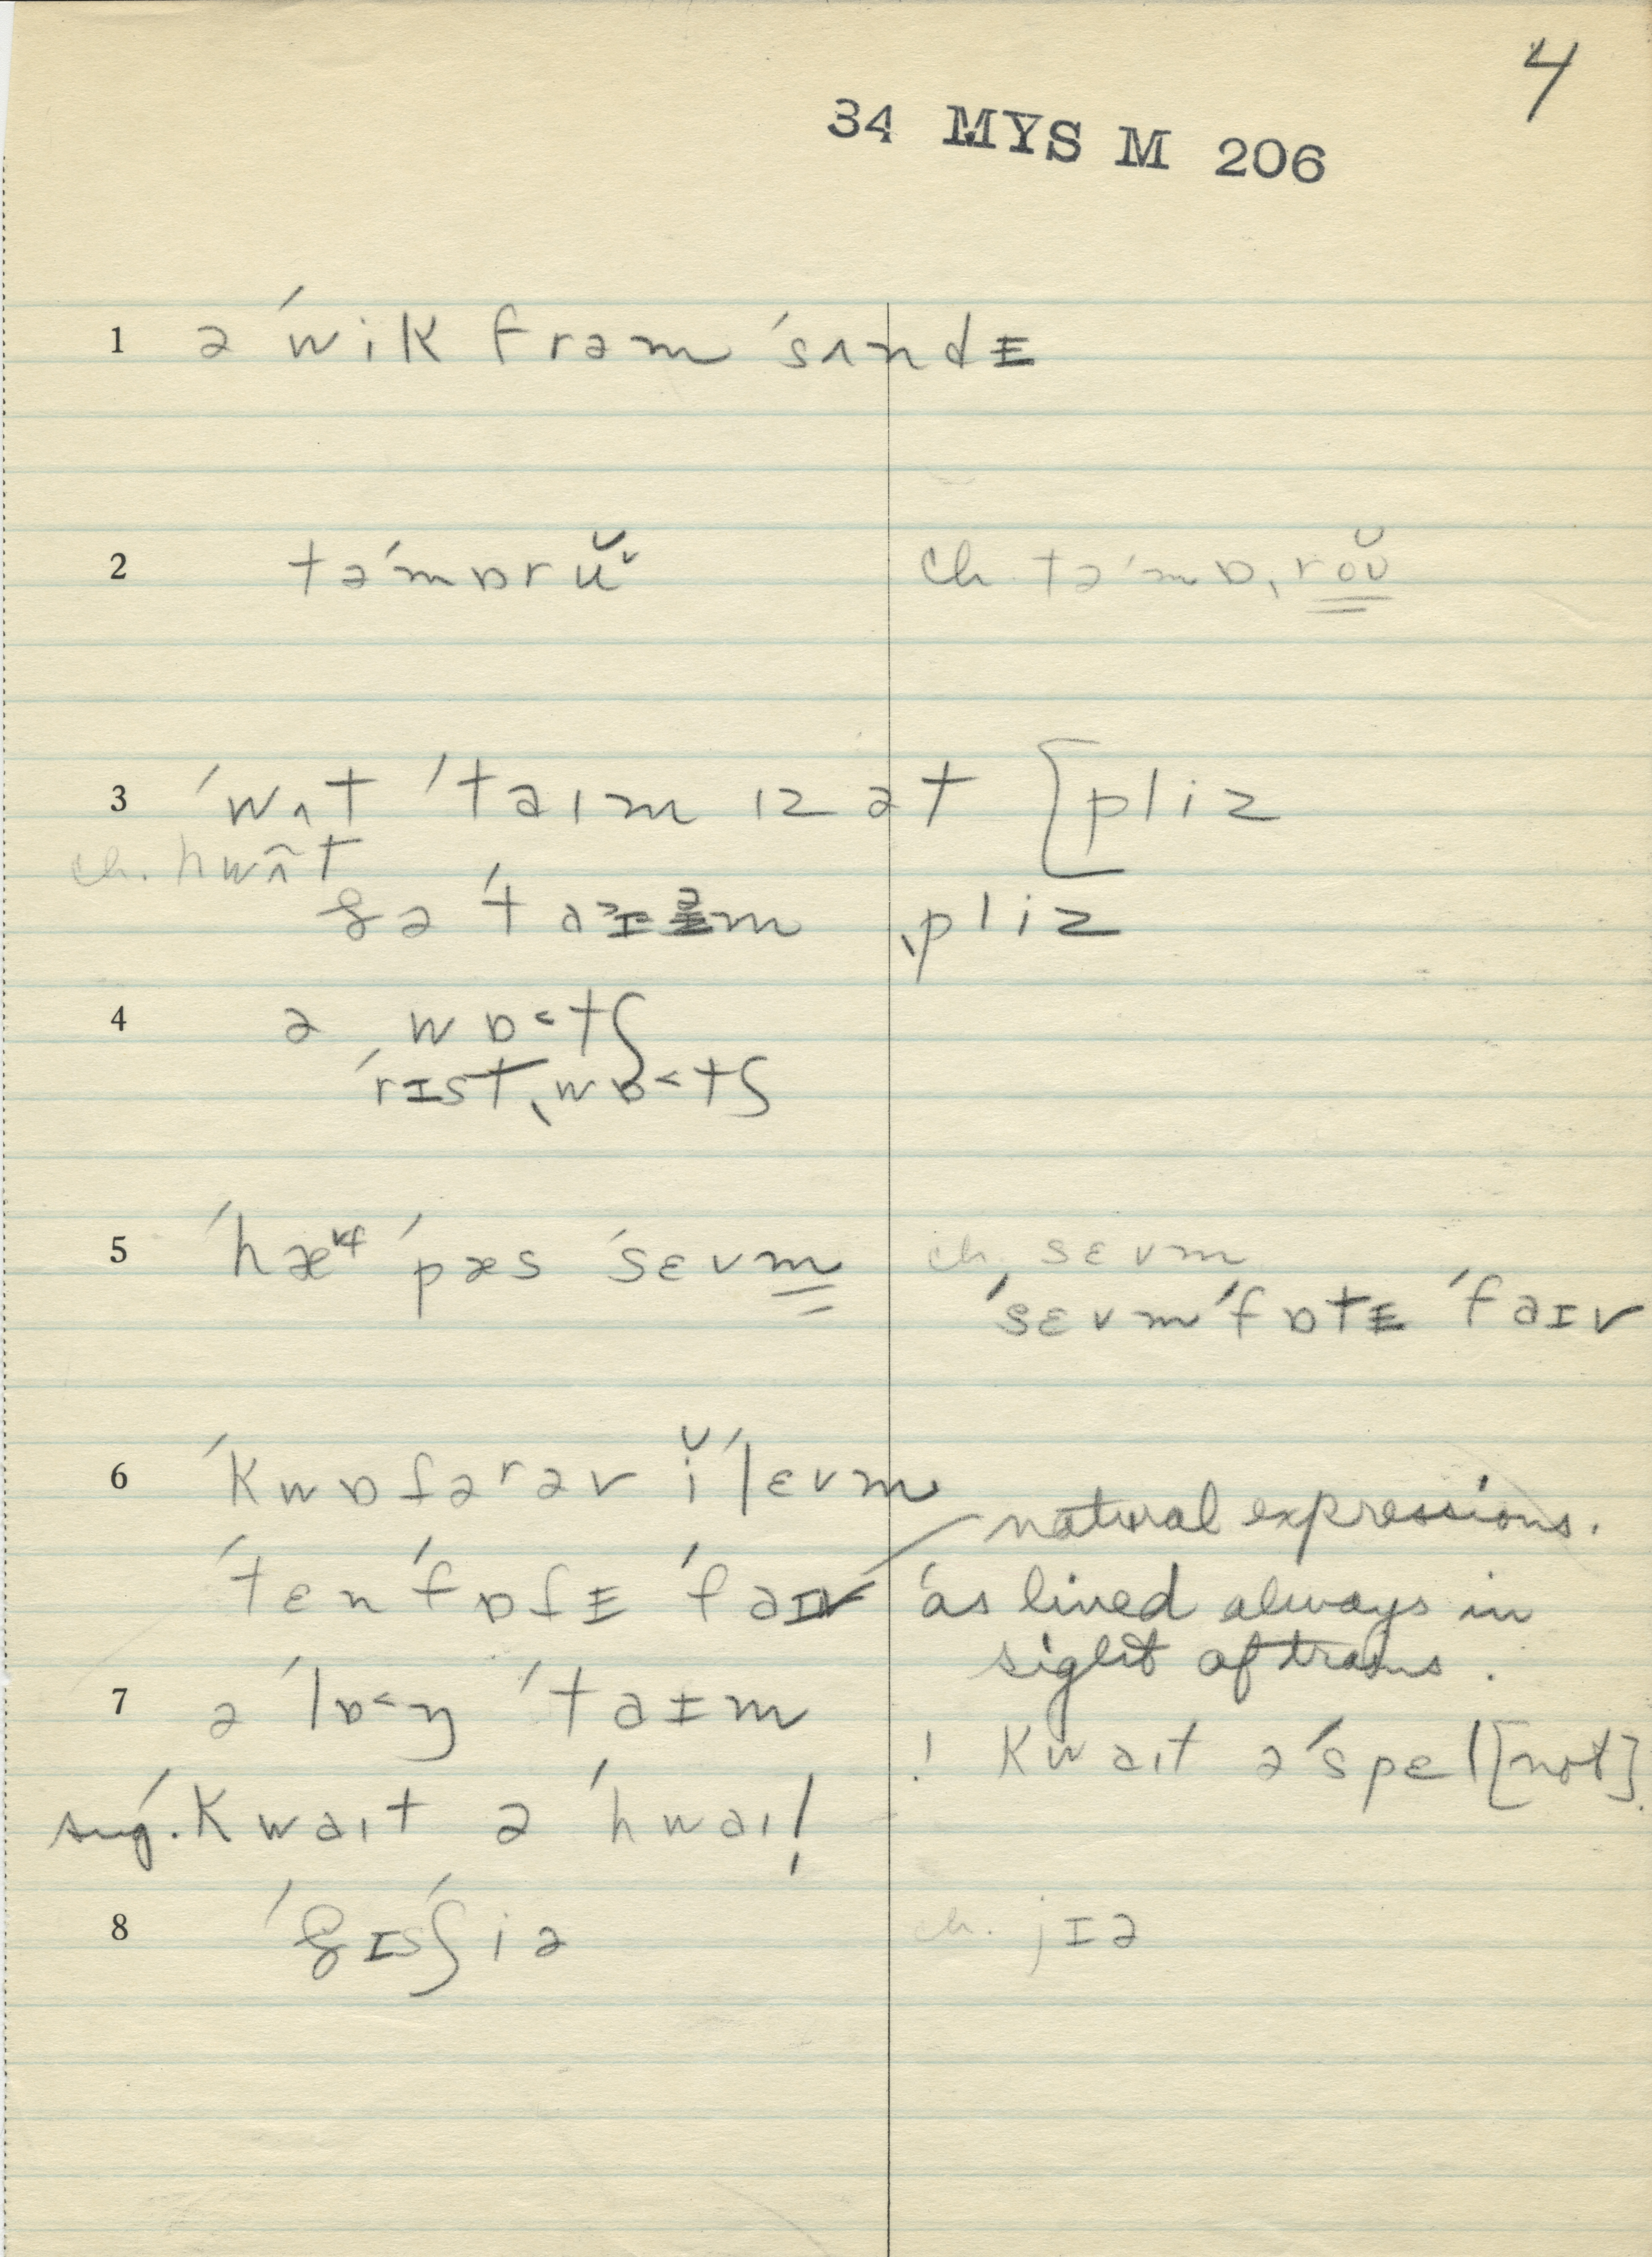 4
34 MYS M 206
1 ə ˈwik frəm ˈsʌndɪ
2 təˈmɒrŭ˅ ch. təˈmɒˌrŏʊ̆
3 ˈwʌt ˈtaɪm ɪz ət [pliz
ch. hwʌ̂t
ðə ˈtaɪəm ˌpliz
4 ə wɒ˂tʃ
ˈrɪstˌwɒ˂tʃ
5 ˈhæf ˈpæs ˈsɛvm ch. sɛvm
ˈsɛvm ˈfɒtɪ ˈfaɪv
6 ˈkwɒfərəv ĭˈlɛvm
natural expressions.
ˈtɛn ˈfɒfɪ ˈfaɪv as lived always in
sight of trains.
7 ə ˈlɒ˂ŋ ˈtaɪm
! kwaɪt əˈspɛl [not]
sug. kwaɪt ə ˈhwaɪl!
8 ˈðɪsˈʃiə ch. jɪə